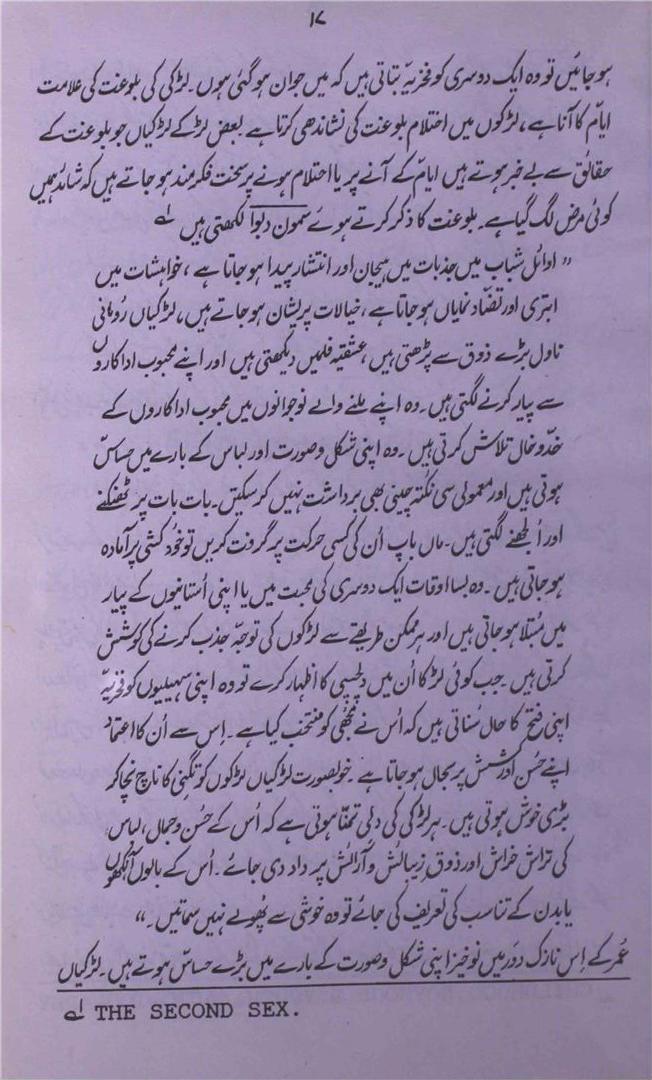 ۱۷
ہو جائیں تو وہ ایک دوسری کو فخریہ بتاتی ہیں کہ میں جوان ہو گئی ہوں۔ لڑکی کی بلوغت کی علامت
ایام کا آنا ہے، لڑکوں میں احتلام بلوغت کی نشاندھی کرتا ہے۔ بعض لڑکے لڑکیاں جو بلوغت کے
حقائق سے بے خبر ہوتے ہیں ایام کے آنے پر یا احتلام ہونے پر سخت فکر مند ہو جاتے ہیں کہ شائد ہمیں
کوئی مرض لگ گیا ہے۔ بلوغت کا ذکر کرتے ہوئے سمون دبوا لکھتی ہیں ۱ے
" اوائل شباب میں جذبات میں ہیجان اور انتشار پیدا ہو جاتا ہے، خواہشات میں
ابتری اور تضّاد نمایاں ہو جاتا ہے، خیالات پریشان ہو جاتے ہیں، لڑکیاں رُومانی
ناول بڑے ذوق سے پڑھتی ہیں، عشقیہ فلمیں دیکھتی ہیں اور اپنے محبوب اداکاروں
سے پیار کرنے لگتی ہیں۔ وہ اپنے ملنے والے نوجوانوں میں محبوب اداکاروں کے
خدّوخال تلاش کرتی ہیں۔ وہ اپنی شکل و صورت اور لباس کے بارے میں حساس
ہوتی ہیں اور معمولی سی نکتہ چینی بھی برداشت نہیں کر سکتیں۔ بات بات پر ٹھنکنے
اور اُلجھنے لگتی ہیں۔ ماں باپ اُن کی کسی حرکت پر گرفت کریں تو خود کشی پر آمادہ
ہو جاتی ہیں۔ وہ بسا اوقات ایک دوسری کی محبت میں یا اپنی اُستانیوں کے پیار
میں مُبتلا ہو جاتی ہیں اور ہر ممکن طریقے سے لڑکوں کی توجّہ جذب کرنے کی کوشش
کرتی ہیں۔ جب کوئی لڑکا اُن میں دلچسپی کا اظہار کرے تو وہ اپنی سہیلیوں کو فخریہ
اپنی فتح کا حال سُناتی ہیں کہ اُس نے مجھی کو منتخب کیا ہے۔ اِس سے اُن کا اعتماد
اپنے حُسن اور کشش پر بحال ہو جاتا ہے۔ خوبصورت لڑکیاں لڑکوں کو تگنی کا ناچ نچا کر
بڑی خوش ہوتی ہیں۔ ہر لڑکی کی دلی تمنّا ہوتی ہے کہ اُس کے حُسن و جمال، لباس،
کی تراش خراش اور ذوقِ زیبائش و آرائش پر داد دی جائے۔ اُس کے بالوں، آنکھوں
یا بدن کے تناسب کی تعریف کی جائے تو وہ خوشی سے پھُولے نہیں سماتیں۔"
عُمر کے اِس نازک دَور میں نوخیز اپنی شکل و صورت کے بارے میں بڑے حساس ہوتے ہیں۔ لڑکیاں
۱ے THE SECOND SEX.